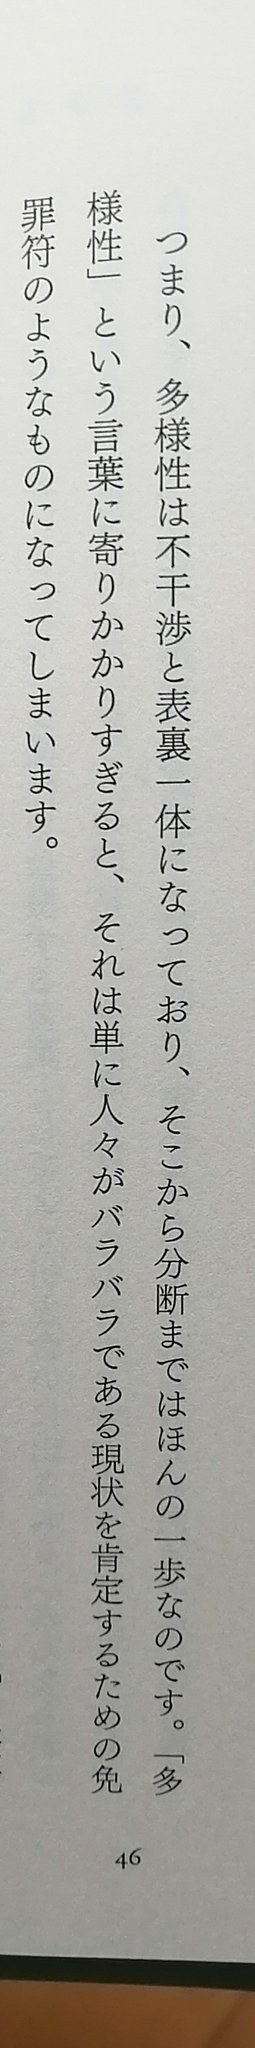 つまり、多様性は不干渉と表裏一体になっており、そこから分断まではほんの一歩なのです。「多
様性」という言葉に寄りかかりすぎると、それは単に人々がバラバラである現状を肯定するための免
罪符のようなものになってしまいます。
46